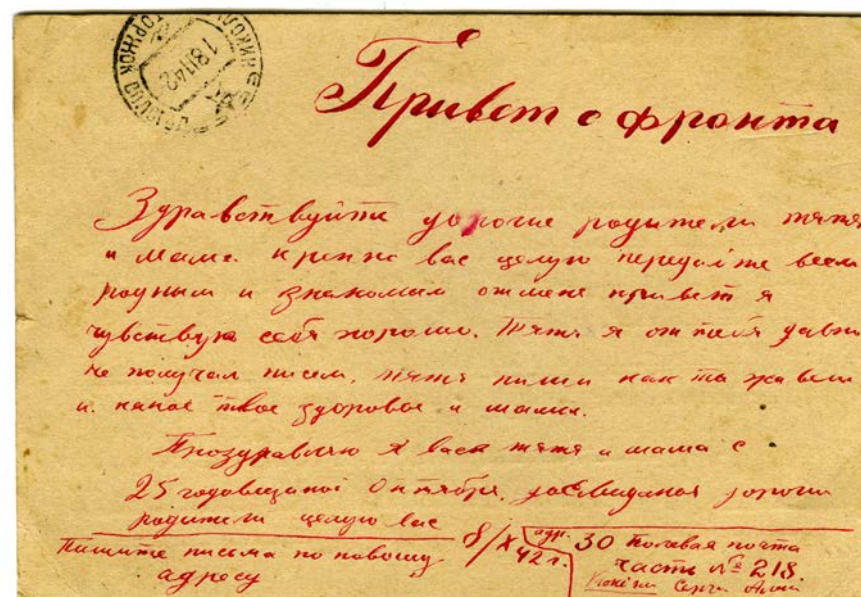 18 11 42
Привет с фронта
Здравствуйте дорогие родители тятя
и мама крепко вас целую передайте всем
родным и знакомым от мене привет я
чувствую себя хорошо. Тятя я от тебя давно
не получал писем, тятя пиши как ты живеш
и какое твое здоровое и мамы.
Проздравляю я васи тятя и мама с
25 годовщиной Октября, досвидания дороги
родители целую вас
8/X 42 г.
Пишите письма по новому
адресу
адр. 30 полевая почта
часть № 218